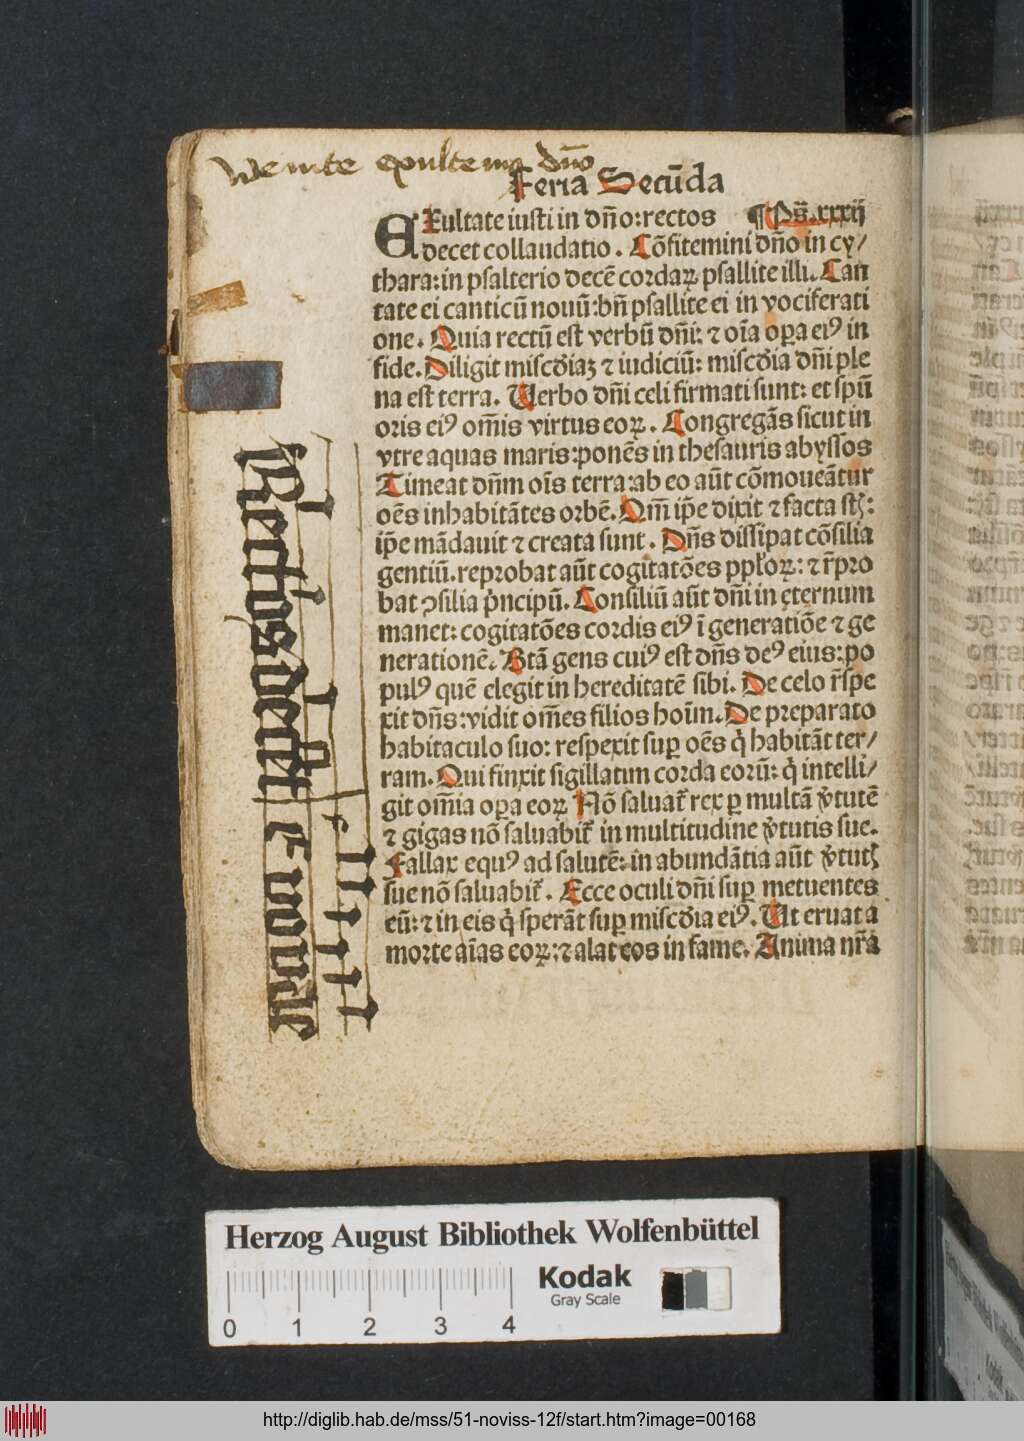 Wenite exultemus dn̄o
Feria Secūda
EXultate iusti in dn̄o: rectos ¶ Ps̄. xxxij
decet collaudatio. Cōfitemini dn̄o in cy/
thara: in psalterio decē cordaꝝ psallite illi. Can
tate ei canticū nouū: bn̄ psallite ei in vociferati
one. Quia rectū est verbū dn̄i: ⁊ oīa oꝑa eiꝰ in
fide. Diligit misc̄diaꝫ ⁊ iudiciū: misc̄dia dn̄i ple
na est terra. Uerbo dn̄i celi firmati sunt: et spū
oris eiꝰ om̄is virtus eoꝝ. Congregās sicut in
vtre aquas maris: ponēs in thesauris abyssos
Timeat dn̄m oīs terra: ab eo aūt cōmoueātur
oēs inhabitātes orbē. Qm̄ ip̄e dixit ⁊ facta st̄:
ip̄e mādauit ⁊ creata sunt. Dn̄s dissipat cōsilia
gentiū. reprobat aūt cogitatōes ppl̄oꝝ: ⁊ r̄pro
bat ꝯsilia p̄ncipū. Consiliū aūt dn̄i in eternum
manet: cogitatōes cordis eiꝰ ī generatiōe ⁊ ge
nerationē. Btā gens cuiꝰ est dn̄s deꝰ eius: po
pulꝰ quē elegit in hereditatē sibi. De celo r̄spe
xit dn̄s: vidit om̄es filios hoīm. De preparato
habitaculo suo: respexit suꝑ oēs q̄ habitāt ter/
ram. Qui finxit sigillatim corda eorū: q̄ intelli/
git om̄ia oꝑa eoꝝ Nō saluat̄ rex ꝑ multā v̄tutē
⁊ gigas nō saluabit̄ in multitudine v̄tutis sue.
Fallax equꝰ ad salutē: in abundātia aūt v̄tutꝭ
sue nō saluabit̄. Ecce oculi dn̄i suꝑ metuentes
eū: ⁊ in eis q̄ sperāt suꝑ misc̄dia eiꝰ. Ut eruat a
morte aīas eoꝝ: ⁊ alat eos in fame. Anima nr̄a
Rectos decet
Herzog August Bibliothek Wolfenbüttel
Kodak
Gray Scale
0 1 2 3 4
http://diglib.hab.de/mss/51-noviss-12f/start.htm?image=00168